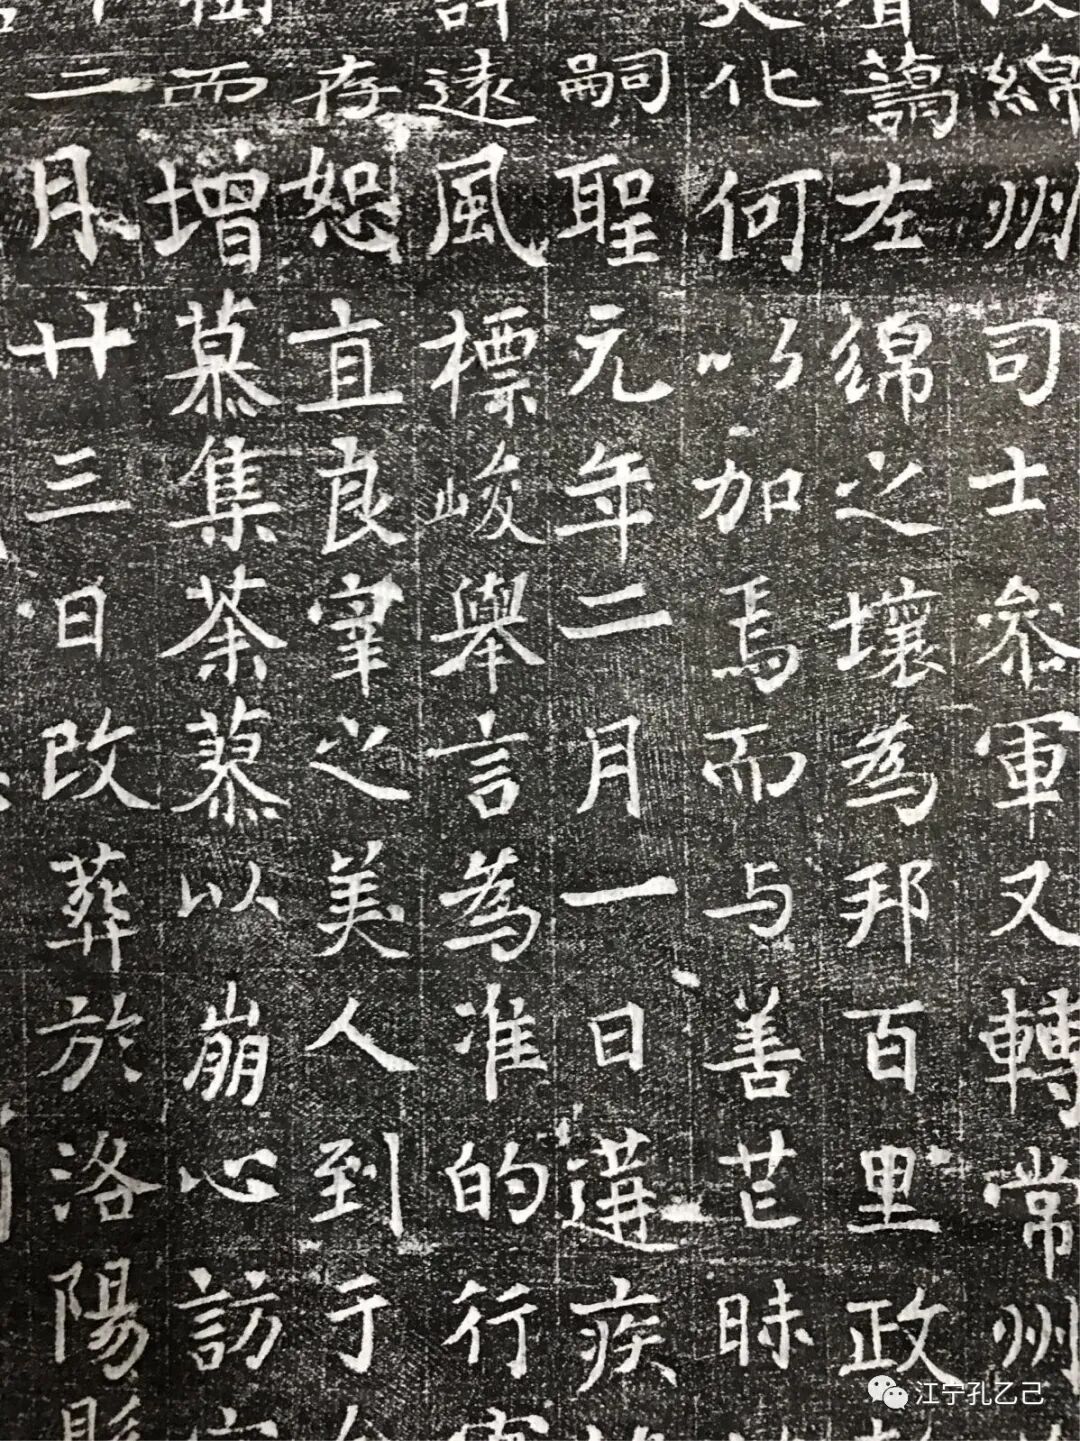 綿州司士參軍又轉常州
藹左綿之壤為邦百里政
化何以加焉而与善芒昧
嗣聖元年二月一日遘疾
遠風標峻舉言為准的行
存恕直良宰之美人到于
而增慕集荼蓼以崩心訪
二月廿三日改葬於洛陽
江宁孔乙己